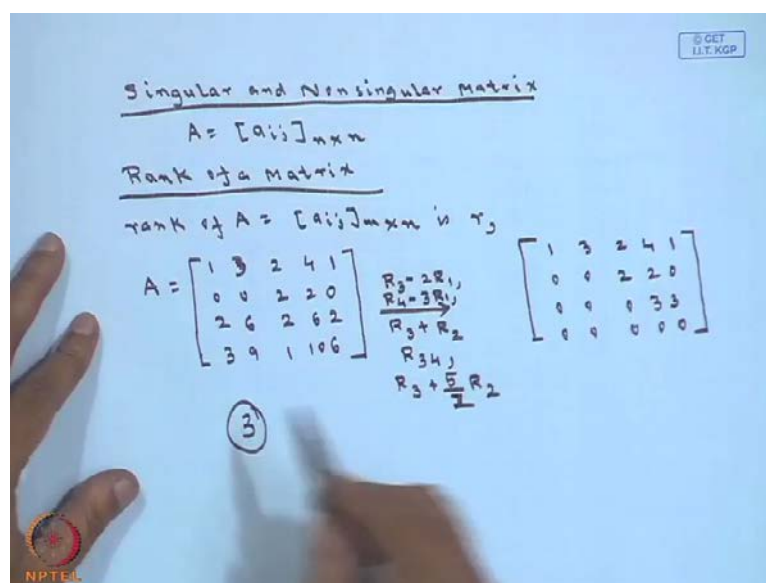 © CET
I.I.T. KGP
Singular and Nonsingular Matrix
A = [aij]n×n
Rank of a Matrix
rank of A = [aij]m×n is r,
A = [ 1 3 2 4 1
0 0 2 2 0
2 6 2 6 2
3 9 1 10 6 ]
R3 - 2R1,
R4 - 3R1,
R3 + R2
R34,
R3 + 5/2 R2
[ 1 3 2 4 1
0 0 2 2 0
0 0 0 3 3
0 0 0 0 0 ]
3
NPTEL